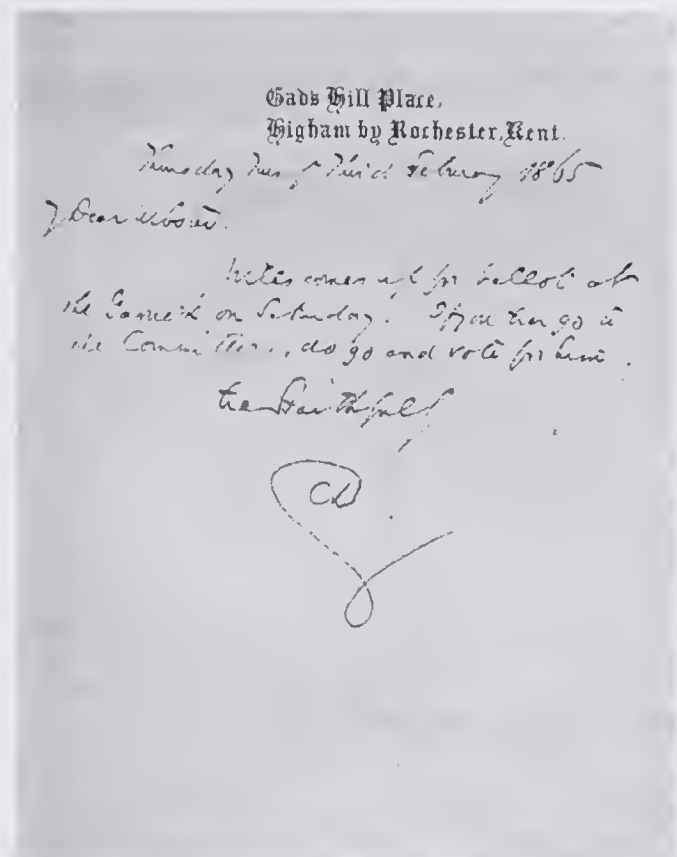 Gads Hill Place,
Higham by Rochester, Kent.
Thursday Third February 1865
My Dear
Wills comes up for ballot at
the Garrick on Saturday. If you can go to
the Committee, do go and vote for him.
Ever Faithfully
CD.